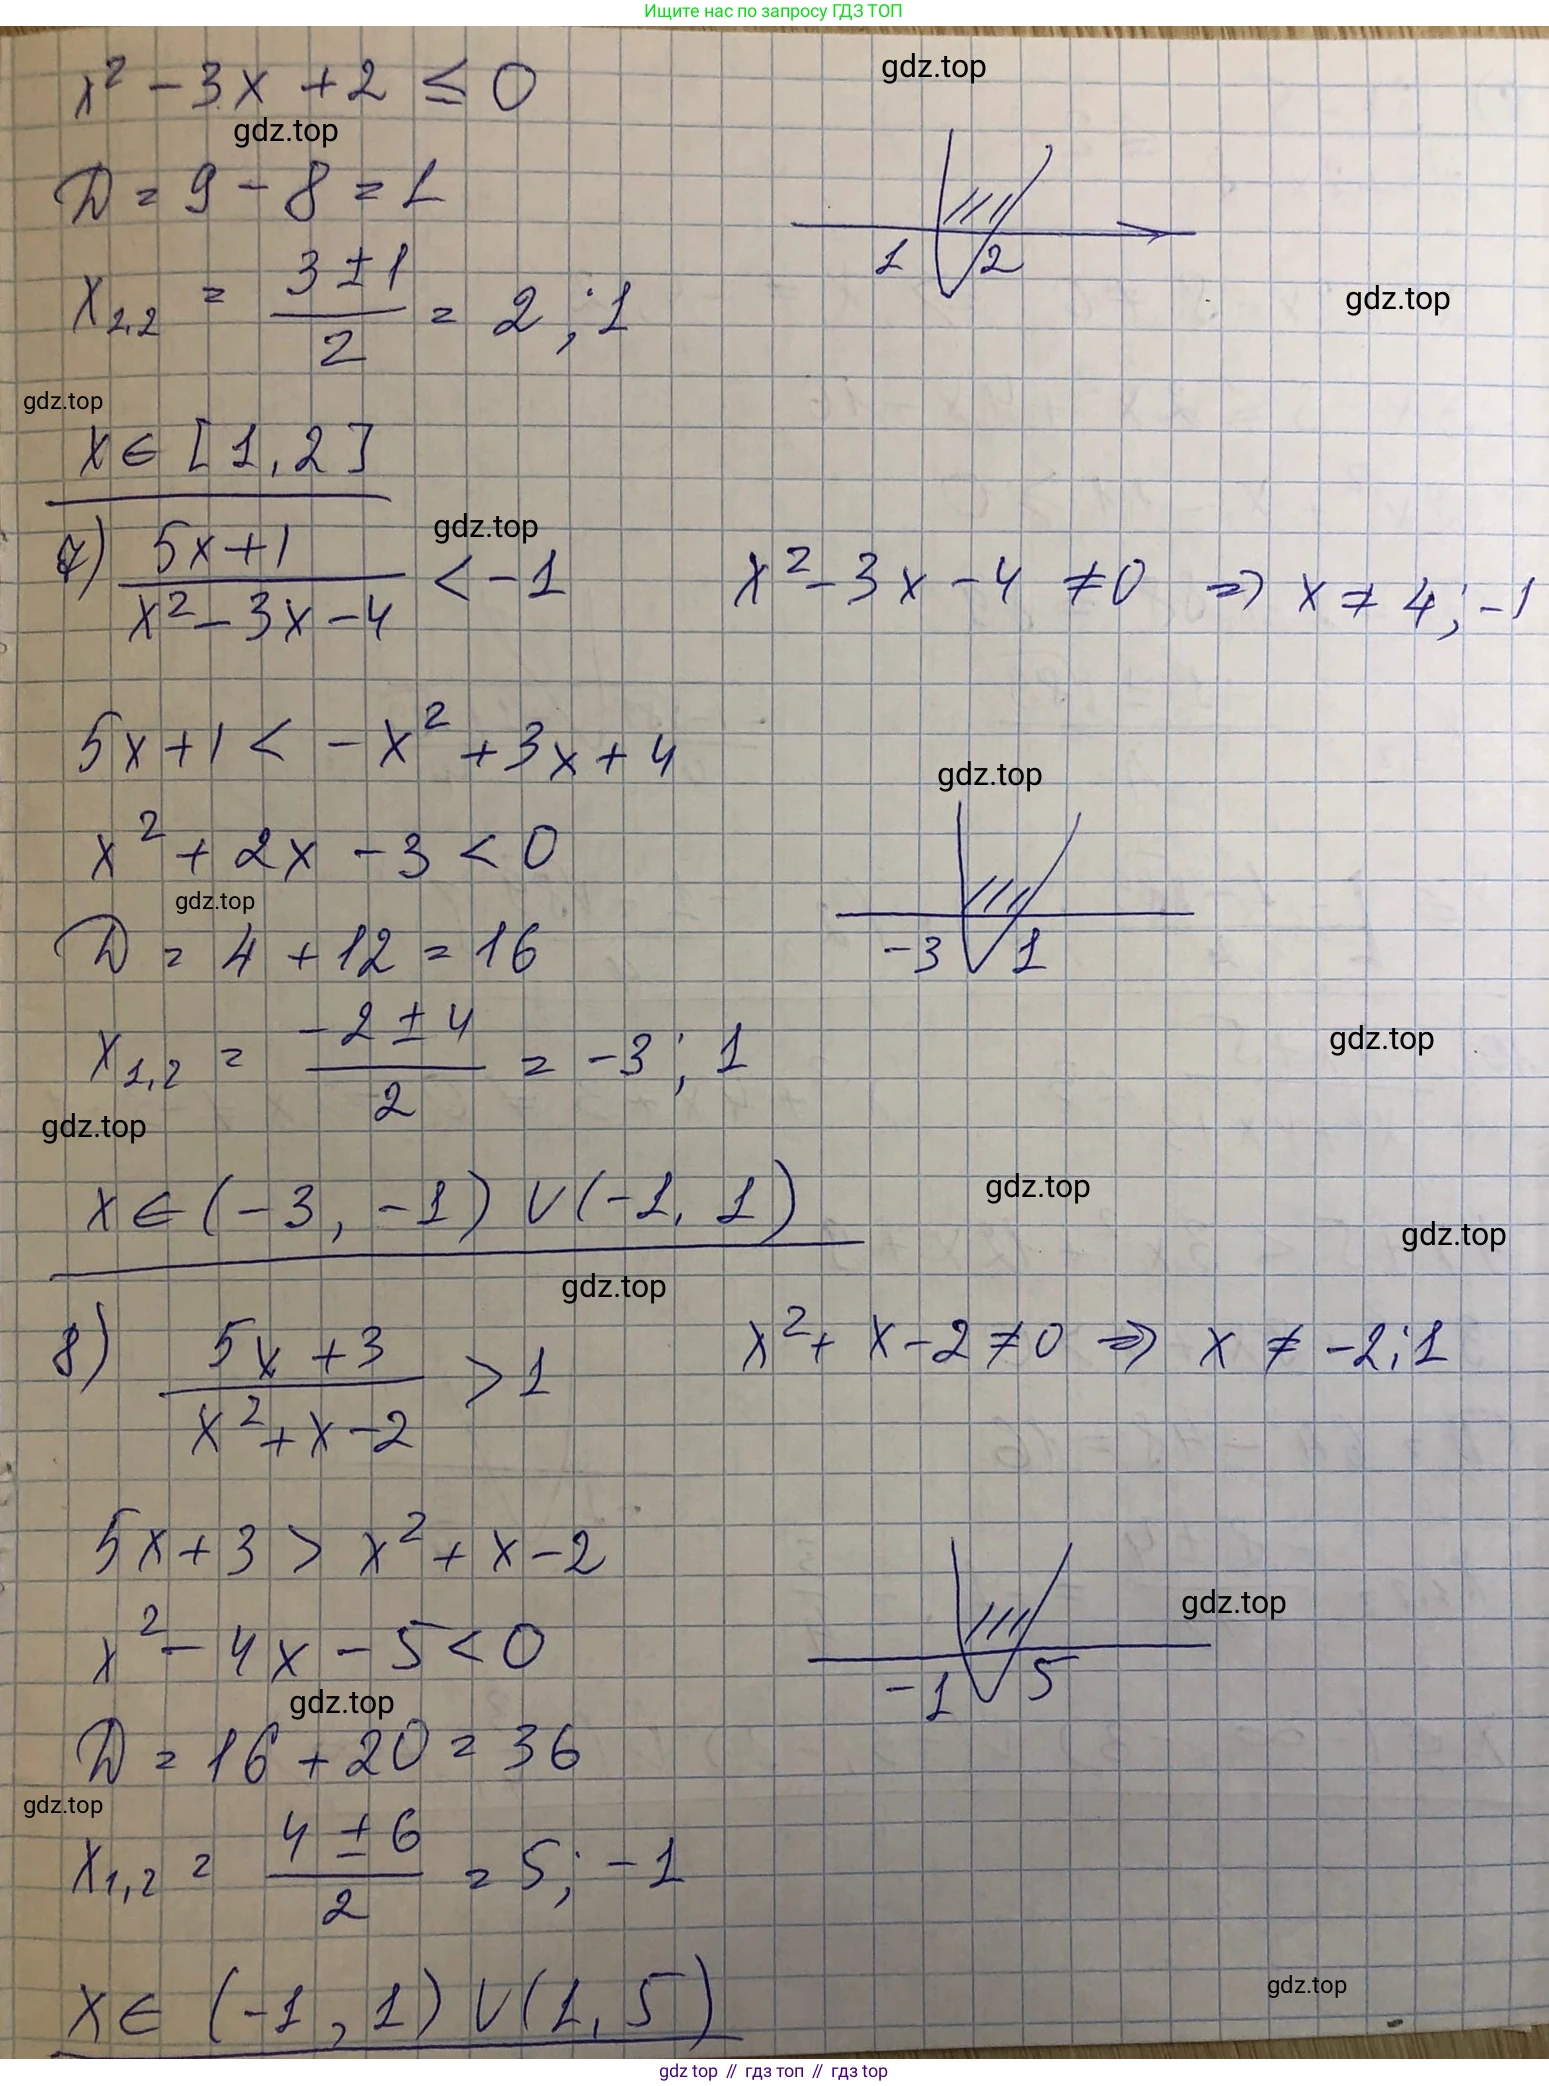 Ищите нас по запросу ГДЗ ТОП
x² - 3x + 2 ≤ 0
gdz.top
gdz.top
D = 9 - 8 = 1
1 2
x₁,₂ = (3 ± 1)/2 = 2 ; 1
gdz.top
gdz.top
x ∈ [1, 2]
7) (5x+1)/(x² - 3x - 4) < -1 x² - 3x - 4 ≠ 0 => x ≠ 4 ; -1
gdz.top
5x + 1 < -x² + 3x + 4
gdz.top
x² + 2x - 3 < 0
gdz.top
D = 4 + 12 = 16
-3 1
gdz.top
x₁,₂ = (-2 ± 4)/2 = -3 ; 1
gdz.top
gdz.top
x ∈ (-3, -1) ∪ (-1, 1)
gdz.top
gdz.top
8) (5x + 3)/(x² + x - 2) > 1 x² + x - 2 ≠ 0 => x ≠ -2 ; 1
5x + 3 > x² + x - 2
gdz.top
x² - 4x - 5 < 0
-1 5
gdz.top
D = 16 + 20 = 36
gdz.top
x₁,₂ = (4 ± 6)/2 = 5 ; -1
gdz.top
x ∈ (-1, 1) ∪ (1, 5)
gdz top // гдз топ // гдз top